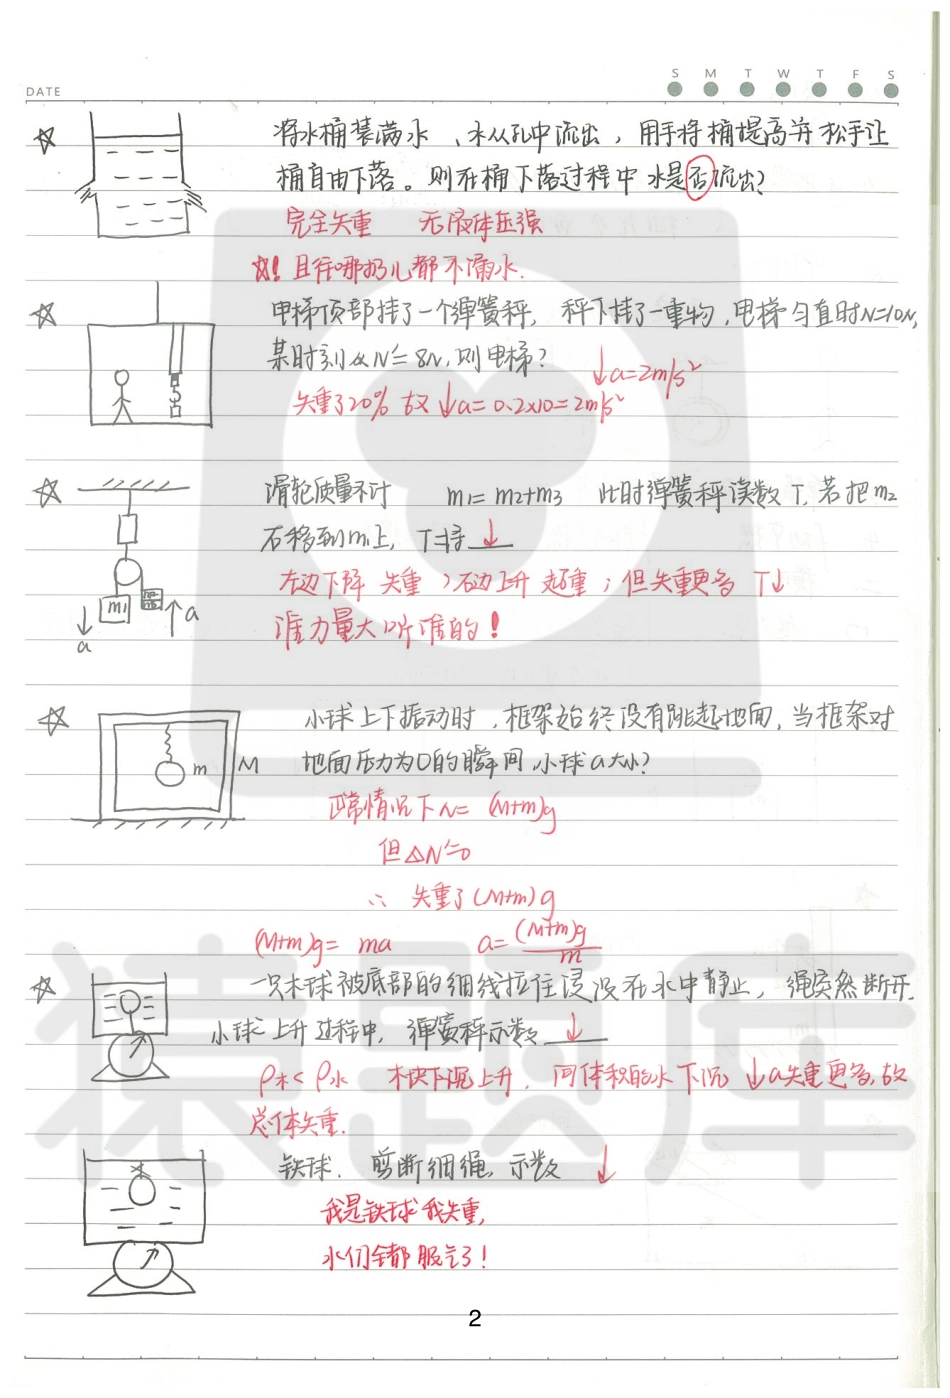 DATE
S M T W T F S
将水桶装满水、水从孔中流出，用手将桶提高并松手让
桶自由下落。则在桶下落过程中水是否流出？
完全失重 无液体压强
☆! 且在哪扔儿都不漏水.
电梯顶部挂了一个弹簧秤, 秤下挂了一重物,电梯匀直时N=10N,
某时刻 N'=8N,则电梯？ ↓a=2m/s²
失重了20% 故↓a=0.2×10=2m/s²
滑轮质量不计 m1=m2+m3 此时弹簧秤读数T.若把m2
右移到m1上, T将 ↓
左边下降 失重 ；右边上升 超重；但失重更多 T↓
谁力量大听谁的！
m1
a
a
小球上下振动时，框架始终没有跳起地面,当框架对
地面压力为0的瞬间,小球a大小？
m M
正常情况下N=(M+m)g
但△N'=0
∴ 失重了(M+m)g
(M+m)g=ma a=(M+m)g/m
一只木球被底部的细线拉住浸没在水中静止，绳突然断开.
小球上升过程中, 弹簧秤示数 ↓
ρ木<ρ水 木块下沉上升. 同体积的水下沉 ↓a失重更多,故
总体失重.
铁球. 剪断细绳, 示数 ↓
我是铁球我失重,
水们全都服气了！
2
猿题库